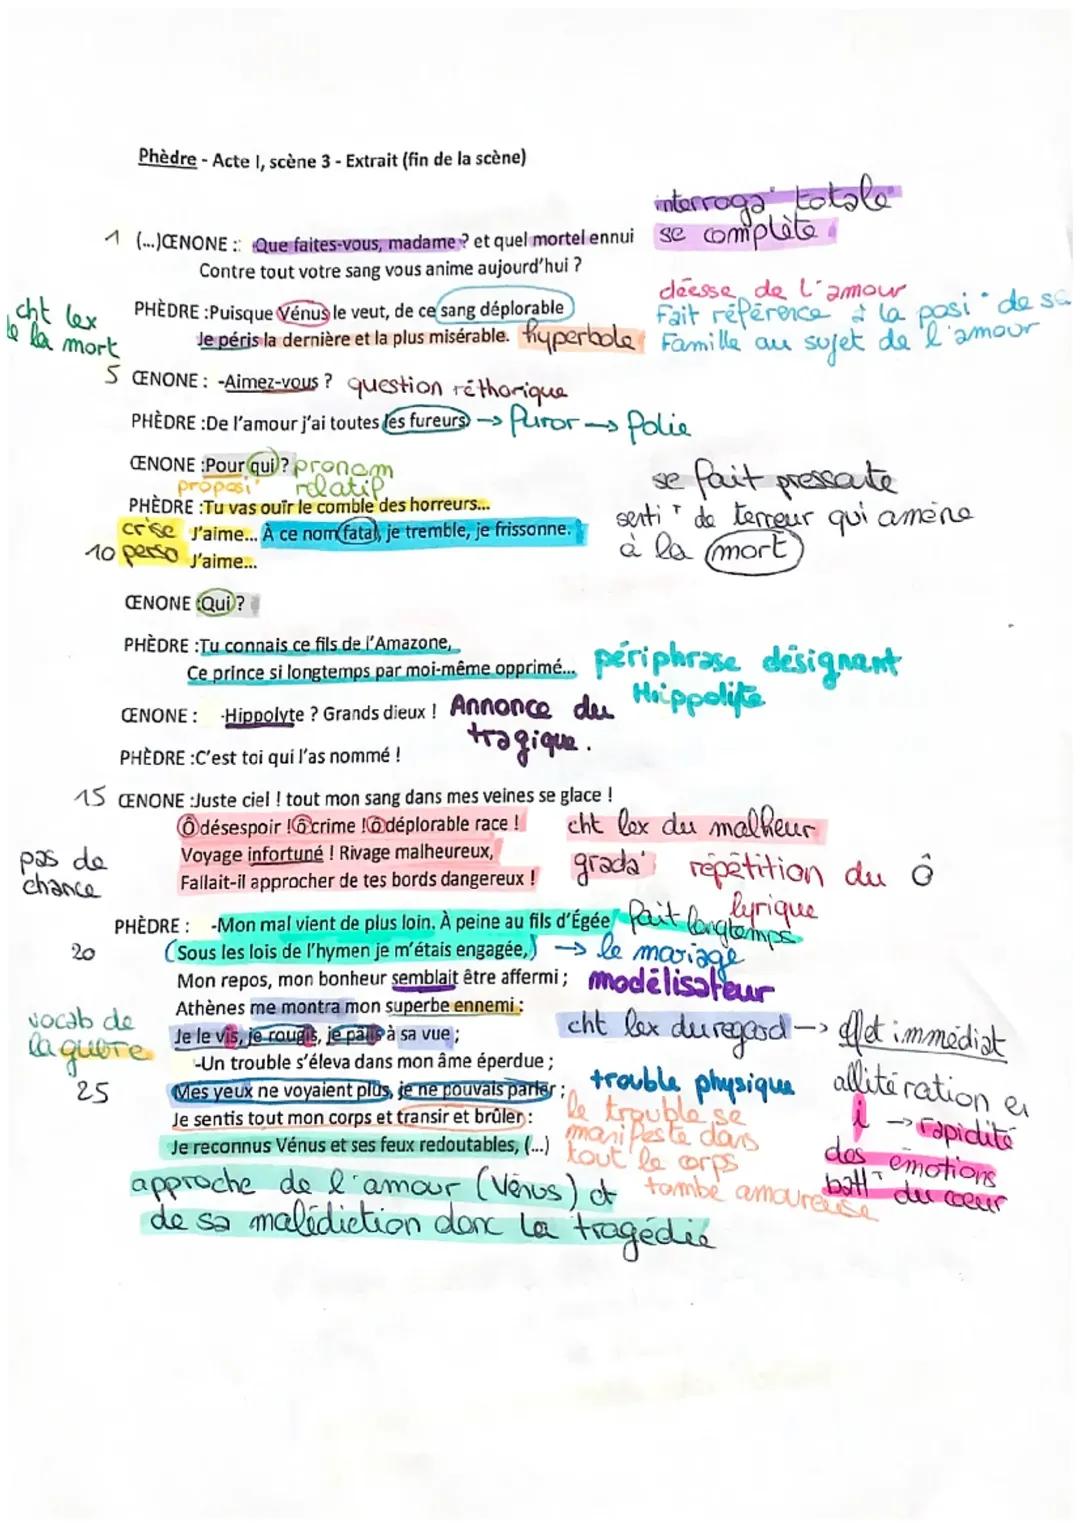 Phèdre - Acte I, scène 3 - Extrait (fin de la scène)
interroga° totale
1 (...)ŒNONE : Que faites-vous, madame ? et quel mortel ennui se complète
Contre tout votre sang vous anime aujourd'hui ?
déesse de l'amour
cht lex de la mort
PHÈDRE :Puisque Vénus le veut, de ce sang déplorable Fait référence à la posi° de sa
Je péris la dernière et la plus misérable. hyperbole Famille au sujet de l'amour
5 ŒNONE : -Aimez-vous ? question réthorique
PHÈDRE :De l'amour j'ai toutes les fureurs → furor → folie
ŒNONE :Pour qui ? pronom relatif se fait pressante
proposi°
PHÈDRE :Tu vas ouïr le comble des horreurs...
crise perso J'aime... À ce nom fatal, je tremble, je frissonne. senti^t de terreur qui amène
10 J'aime... à la mort
ŒNONE :Qui ?
PHÈDRE :Tu connais ce fils de l'Amazone,
Ce prince si longtemps par moi-même opprimé... périphrase désignant
Hippolyte
ŒNONE : -Hippolyte ? Grands dieux ! Annonce du
tragique.
PHÈDRE :C'est toi qui l'as nommé !
15 ŒNONE :Juste ciel ! tout mon sang dans mes veines se glace !
Ô désespoir ! ô crime ! ô déplorable race ! cht lex du malheur
pas de chance
Voyage infortuné ! Rivage malheureux, grada° répétition du ô
Fallait-il approcher de tes bords dangereux ! lyrique
PHÈDRE : -Mon mal vient de plus loin. À peine au fils d'Égée fait longtemps
20 (Sous les lois de l'hymen je m'étais engagée,) → le mariage
Mon repos, mon bonheur semblait être affermi ; modélisateur
Athènes me montra mon superbe ennemi :
vocab de la guerre
Je le vis, je rougis, je pâlis à sa vue ; cht lex du regard → effet immédiat
-Un trouble s'éleva dans mon âme éperdue ;
25 Mes yeux ne voyaient plus, je ne pouvais parler ; trouble physique allitération en
Je sentis tout mon corps et transir et brûler : le trouble se i → rapidité
Je reconnus Vénus et ses feux redoutables, (...) manifeste dans des émotions
tout le corps batt^t du cœur
approche de l'amour (Vénus) et tombe amoureuse
de sa malédiction donc la tragédie